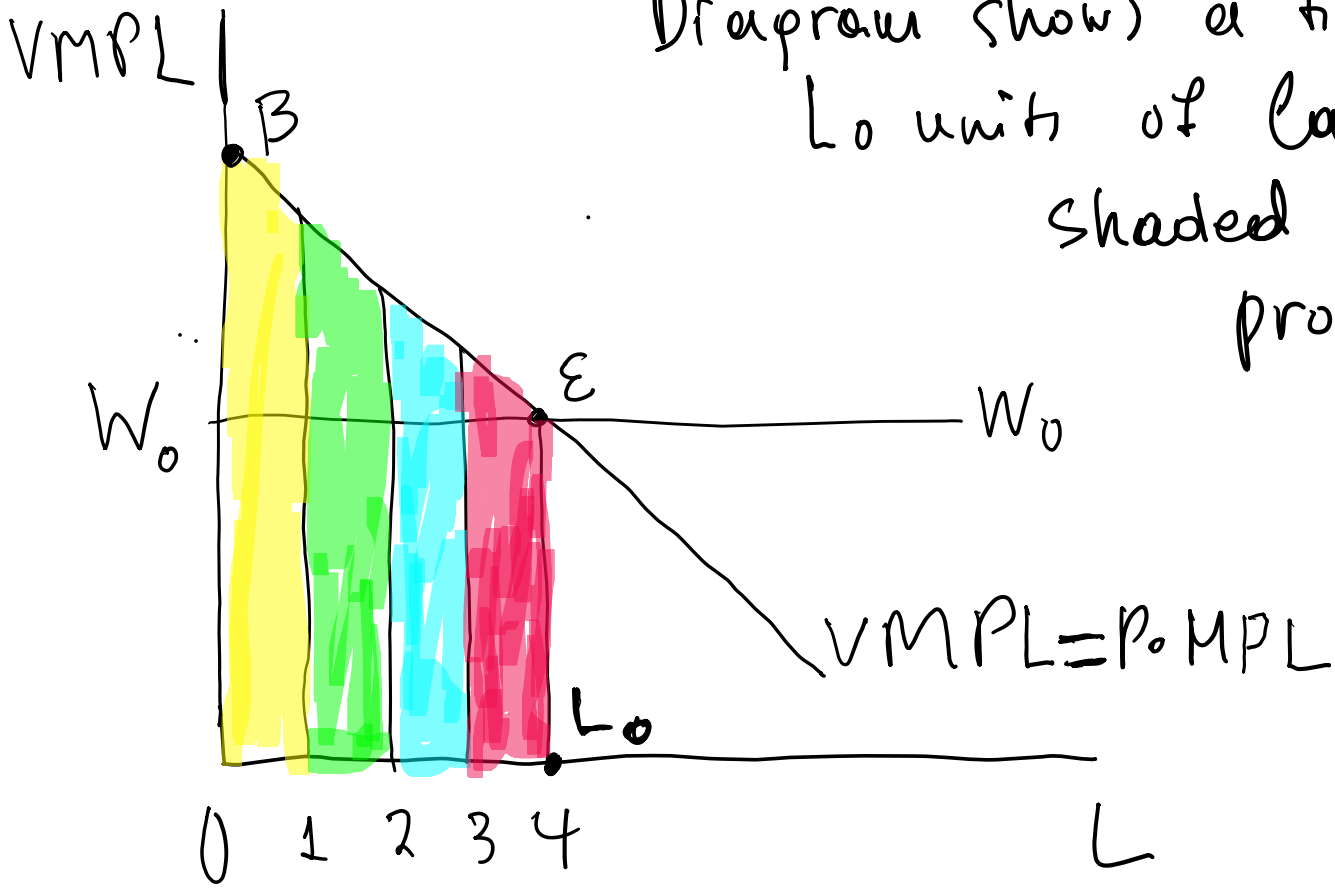 VMPL
Diagram shows a
B
L₀ units of
shaded
W₀
E
W₀
VMPL = P. MPL
L₀
0 1 2 3 4 L